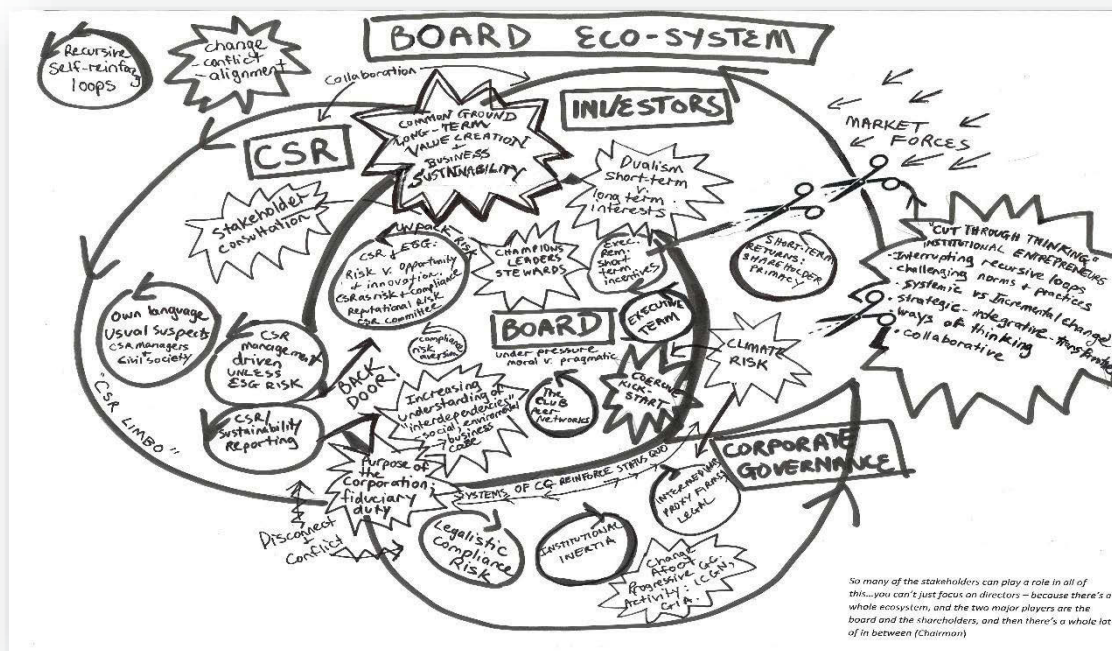 BOARD ECO-SYSTEM
Recursive
Self-reinforcing
loops
change
conflict
-alignment
Collaboration
INVESTORS
CSR
COMMON GROUND
LONG-TERM
VALUE CREATION
+
BUSINESS
SUSTAINABILITY
MARKET
FORCES
Dualism
short-term
v.
long term
interests
Stakeholder
consultation
UNPACK RISK
CSR ESG:
Risk v. opportunity
+ innovation
CSR as risk + compliance
Reputational Risk
CSR Committee
CHAMPIONS
LEADERS
STEWARDS
Exec.
Rem:
short
term
incentives
SHORT-TERM
RETURNS:
SHAREHOLDER
PRIMACY
"CUT THROUGH THINKING"
INSTITUTIONAL ENTREPRENEURS
•Interrupting recursive loops
•challenging norms + practices
•systemic vs incremental change
•strategic-integrative-
ways of thinking
•Collaborative
Own language
Usual suspects
CSR managers
+
Civil society
CSR
management
driven
UNLESS
ESG RISK
CSR/
Sustainability
Reporting
"CSR LIMBO"
BACK
DOOR!
compliance
risk
aversion
BOARD
under pressure
moral v. pragmatic
EXECUTIVE
TEAM
COERCIVE
KICK-
START
CLIMATE
RISK
Increasing
understanding of
"interdependencies"
social, environmental
→ business
case
The
CLUB
Peer
Networks
CORPORATE
GOVERNANCE
Purpose of
the
Corporation:
fiduciary
duty
SYSTEMS OF CG REINFORCE STATUS QUO
Disconnect
+
Conflict
Legalistic
Compliance
Risk
INSTITUTIONAL
INERTIA
PROXY FIRMS
LEGAL
Change
Afoot
Progressive GC.
Activity: ICGN,
So many of the stakeholders can play a role in all of
this...you can't just focus on directors – because there's a
whole ecosystem, and the two major players are the
board and the shareholders, and then there's a whole lot
of in between (Chairman)